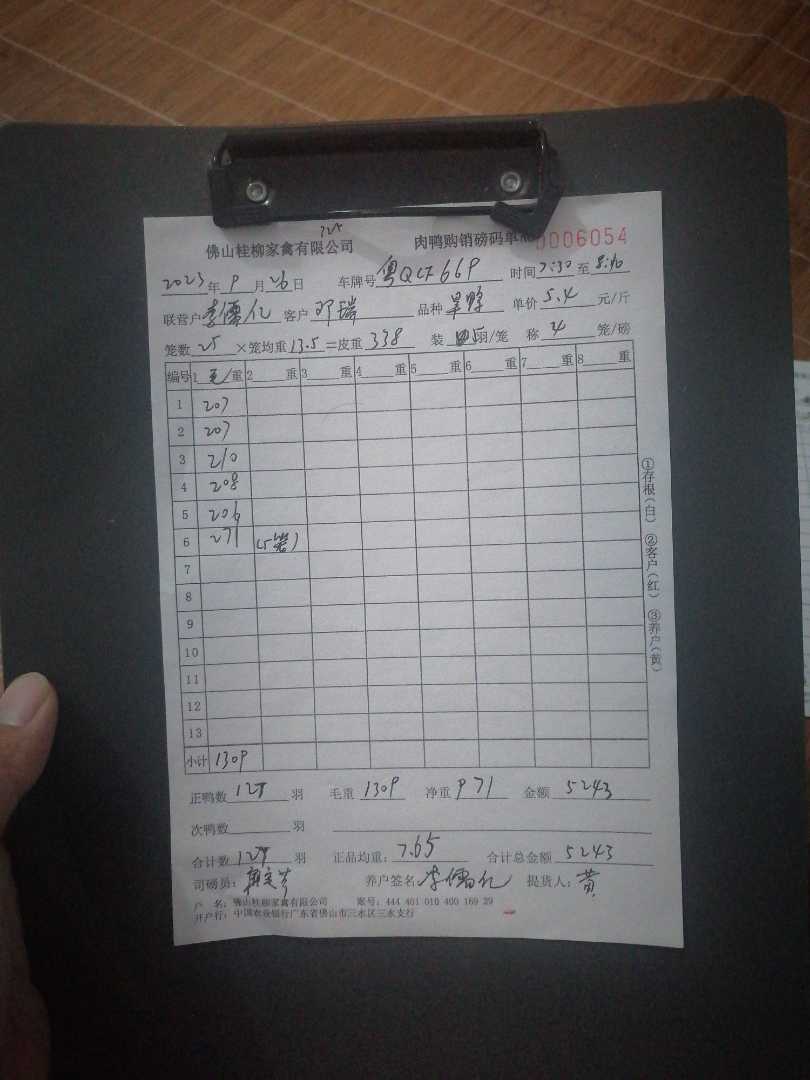 325
佛山桂柳家禽有限公司 肉鸭购销磅码单 0006054
2023年9月26日 车牌号 粤QCF669 时间 7:30 至 8:10
联营户 李儒亿 客户 邓瑞 品种 单价 5.4 元/斤
笼数 25 ×笼均重 13.5 =皮重 338 装 5 羽/笼 称 4 笼/磅
编号 1 毛/重 2 重 3 重 4 重 5 重 6 重 7 重 8 重
1 207
2 207
3 210
4 208
5 206
6 271 (5笼)
7
8
9
10
11
12
13
小计 1309
正鸭数 127 羽 毛重 1309 净重 971 金额 5243
次鸭数 羽
合计数 127 羽 正品均重: 7.65 合计总金额 5243
司磅员: 养户签名: 李儒亿 提货人: 黄
户 名: 佛山桂柳家禽有限公司 案号: 444 401 010 400 169 29
开户行: 中国农业银行广东省佛山市三水区三水支行
①存根(白) ②客户(红) ③养户(黄)